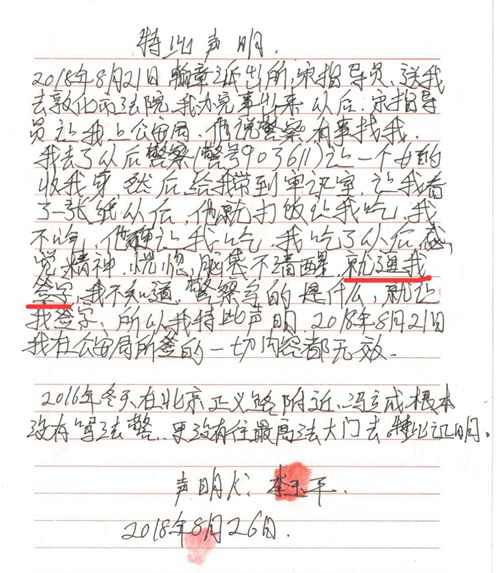 特此声明.
2018年8月21日 翰章派出所,宋指导员,送我
去敦化市法院,我办完事出来以后,宋指导
员让我上公安局,他说警察有事找我,
我去了以后警察(警号903611)让一个女的
收我身,然后,给我带到审讯室,让我看
了一张纸以后,他就打饭让我吃,我
不吃,他让我吃,我吃了以后感
觉精神,恍惚,脑袋不清醒,就逼我
签字,我不知道,警察写的是什么,就让
我签字、所以我特此声明.2018年8月21日
我在公安局所签的一切内容都无效.
2016年冬天在北京正义路附近,冯立成根本
没有骂法警,更没有往最高法大门去.特此证明。
声明人:李玉平.
2018年8月26日.